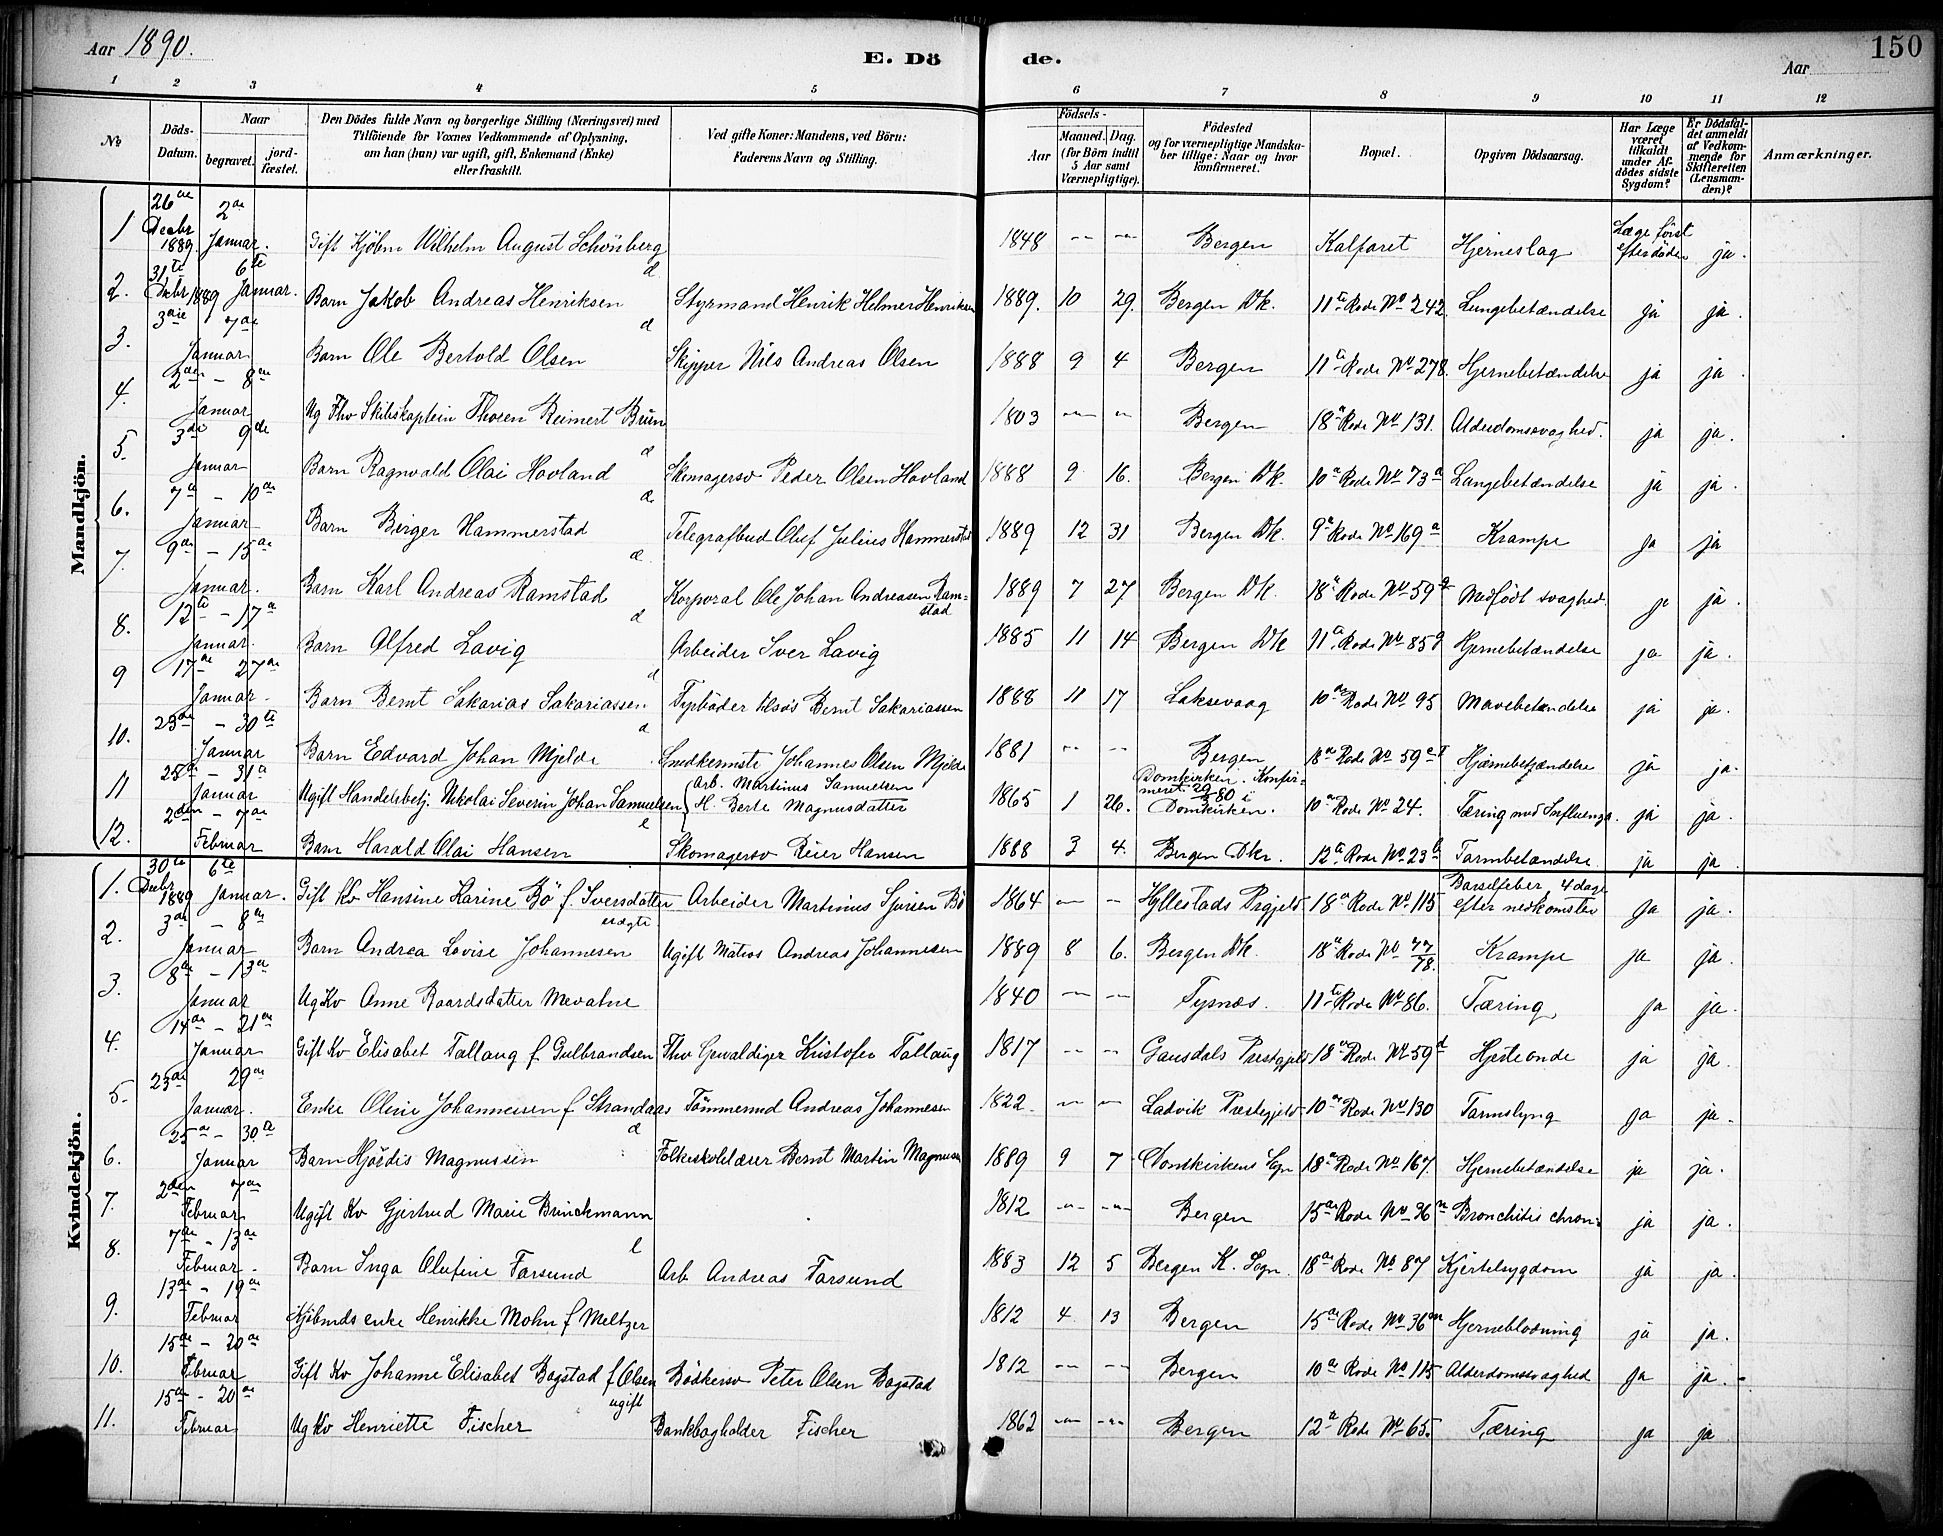 Aar 1890.
E. Dö
de.
Aar
150
1 2 3 4 5 6 7 8 9 10 11 12
No.
Döds-Datum.
Naar
begravet.
jord-fæstet.
Den Dödes fulde Navn og borgerlige Stilling (Næringsvei) med
Tilföiende for Voxnes Vedkommende af Oplysning.
om han (hun) var ugift, gift, Enkemand (Enke)
eller fraskilt.
Ved gifte Koner: Mandens, ved Börn:
Faderens Navn og Stilling.
Födsels-
Aar
Maaned. Dag.
(for Börn indtil
5 Aar samt
Værnepligtige).
Födested
og for værnepligtige Mandska-
ber tillige: Naar og hvor
konfirmeret.
Bopæl.
Opgiven Dödsaarsag.
Har Læge
været
tilkaldt
under Af-
dödes sidste
Sygdom?
Er Dödsfal-
det anmeldt
af Vedkom-
mende for
Skifteretten
(Lensman-
den)?
Anmærkninger.
Mandkjön.
1 26de Decbr 1889 2de Januar. Gift Kjöbm Wilhelm August Schönberg 1848 -- -- Bergen Kalfaret Hjerneslag Læge först efter döden ja.
2. 31te Decbr 1889 6te Januar. Barn Jakob Andreas Henriksen Styrmand Henrik Helmer Henriksen 1889. 10 29. Bergen Dk. 11te Rode No 242 Lungebetændelse ja ja.
3. 3die 7de Januar Barn Ole Bertold Olsen Skipper Nils Andreas Olsen 1888 9 4 Bergen 11te Rode No 278. Hjernebetændelse ja ja.
4. 2den - 8de Januar Ug Fhv Skibskaptein Thosen Reimert Brun 1803 -- -- Bergen 18de Rode No 131. Alderdomssvaghed. ja ja.
5. 3de 9de Januar Barn Ragnvald Olai Hovland Skomagersv Peder Olsen Hovland 1888 9 16. Bergen Dk. 10de Rode No 73a Lungebetændelse ja ja.
6. 7de - 10de Januar Barn Birger Hammerstad Telegrafbud Oluf Julius Hammerstad 1889 12 31 Bergen Dk. 9de Rode No 169a Krampe ja ja
7. 9de - 15de Januar. Barn Karl Andreas Ramstad Korporal Ole Johan Andreasen Ramstad 1889 7 27 Bergen Dk. 18de Rode No 59 Medfödt svaghed. ja ja.
8. 12te - 17de Januar. Barn Alfred Lavig Arbeider Iver Lavig 1885 11 14 Bergen Dk 11te Rode No 859 Hjernebetændelse ja ja.
9 17de 27de Januar Barn Bernt Sakarias Sakariassen Fyrböder Bernt Sakariassen 1888 11 17 Laksevaag 10de Rode No 95 Mavebetændelse ja ja.
10. 23de - 30te Januar Barn Edvard Johan Mjelde Snedkermste Johannes Olsen Mjelde 1881 -- -- Bergen 18de Rode No 59 Hjærnebetændelse ja ja.
11 25de - 31te Januar Ugift Handelsbetj. Nikolai Severin Johan Samuelsen Arb. Martinus Samuelsen H. Berte Magnusdatter 1865 1 26. Domkirken. Konfirmeret 29/3 80 i Domkirken. 10de Rode No 24. Tæring med Influenza. ja ja.
12. 2den - 7de Februar Barn Harald Olai Hansen Skomagersv Reier Hansen 1888 3 4. Bergen Dkr. 12te Rode No 23b Tarmbetændelse ja ja.
Kvindekjön.
1. 30te Decbr 1889 6te Januar. Gift Kv Hansine Karine Bö f. Iversdatter Arbeider Martinus Sjursen Bö 1864 -- -- Hyllestads Prgjeld 18de Rode No 115 Barselfeber 4 dage efter nedkomsten ja ja.
2. 3de - 8de Januar uægte Barn Andrea Lovise Johannesen Ugift Matros Andreas Johannesen 1889 8 6. Bergen Dk. 18de Rode No 77/78. Krampe ja ja.
3. 8de - 13de Januar Ug Kv Anne Baardsdatter Mevatne 1840 -- -- Tysnæs. 11te Rode No 86. Tæring ja ja.
4. 14de - 21de Januar Gift Kv Elisabet Tallaug f. Gulbrandsen Fhv Gevaldiger Kristofer Tallaug 1817 -- -- Gausdals Prestegjeld 18de Rode No 59d Hjerteonde ja ja.
5. 23de 29de Januar. Enke Oline Johannessen f Strandaas Tömmermd Andreas Johannesen 1822. -- -- Ladvik Prestegjeld 10de Rode No 130 Tarmslyng ja ja.
6. 25de - 30te Januar Barn Hjördis Magnussen Folkeskolelærer Bernt Martin Magnussen 1889 9 7 Domkirkens Sogn 18de Rode No 167. Hjernebetændelse ja ja.
7. 2den 7de Februar Ugift Kv Gjertrud Marie Brinckmann 1812 -- -- Bergen 15de Rode No 36 Bronchitis chron. ja ja.
8. 7de - 13de Februar. Barn Inga Olufine Farsund Arb. Andreas Farsund 1883 12 5 Bergen K. Sogn. 18de Rode No 87 Kjertelsygdom ja ja.
9. 13de - 19de Februar Kjöbmds enke Henrikke Mohn f Meltzer 1812 4 13 Bergen 15de Rode No 36 Hjerneblödning ja ja.
10. 15de - 20de Februar Gift Kv Johanne Elisabet Bogstad f Olsen Bödkersv Peter Olsen Bogstad 1812 -- -- Bergen 10de Rode No 115 Alderdomssvaghed ja ja.
11. 15de - 20de Februar ugift Ug Kv Henriette Fischer Bankbogholder Fischer 1862 -- -- Bergen 12te Rode No 65. Tæring ja ja